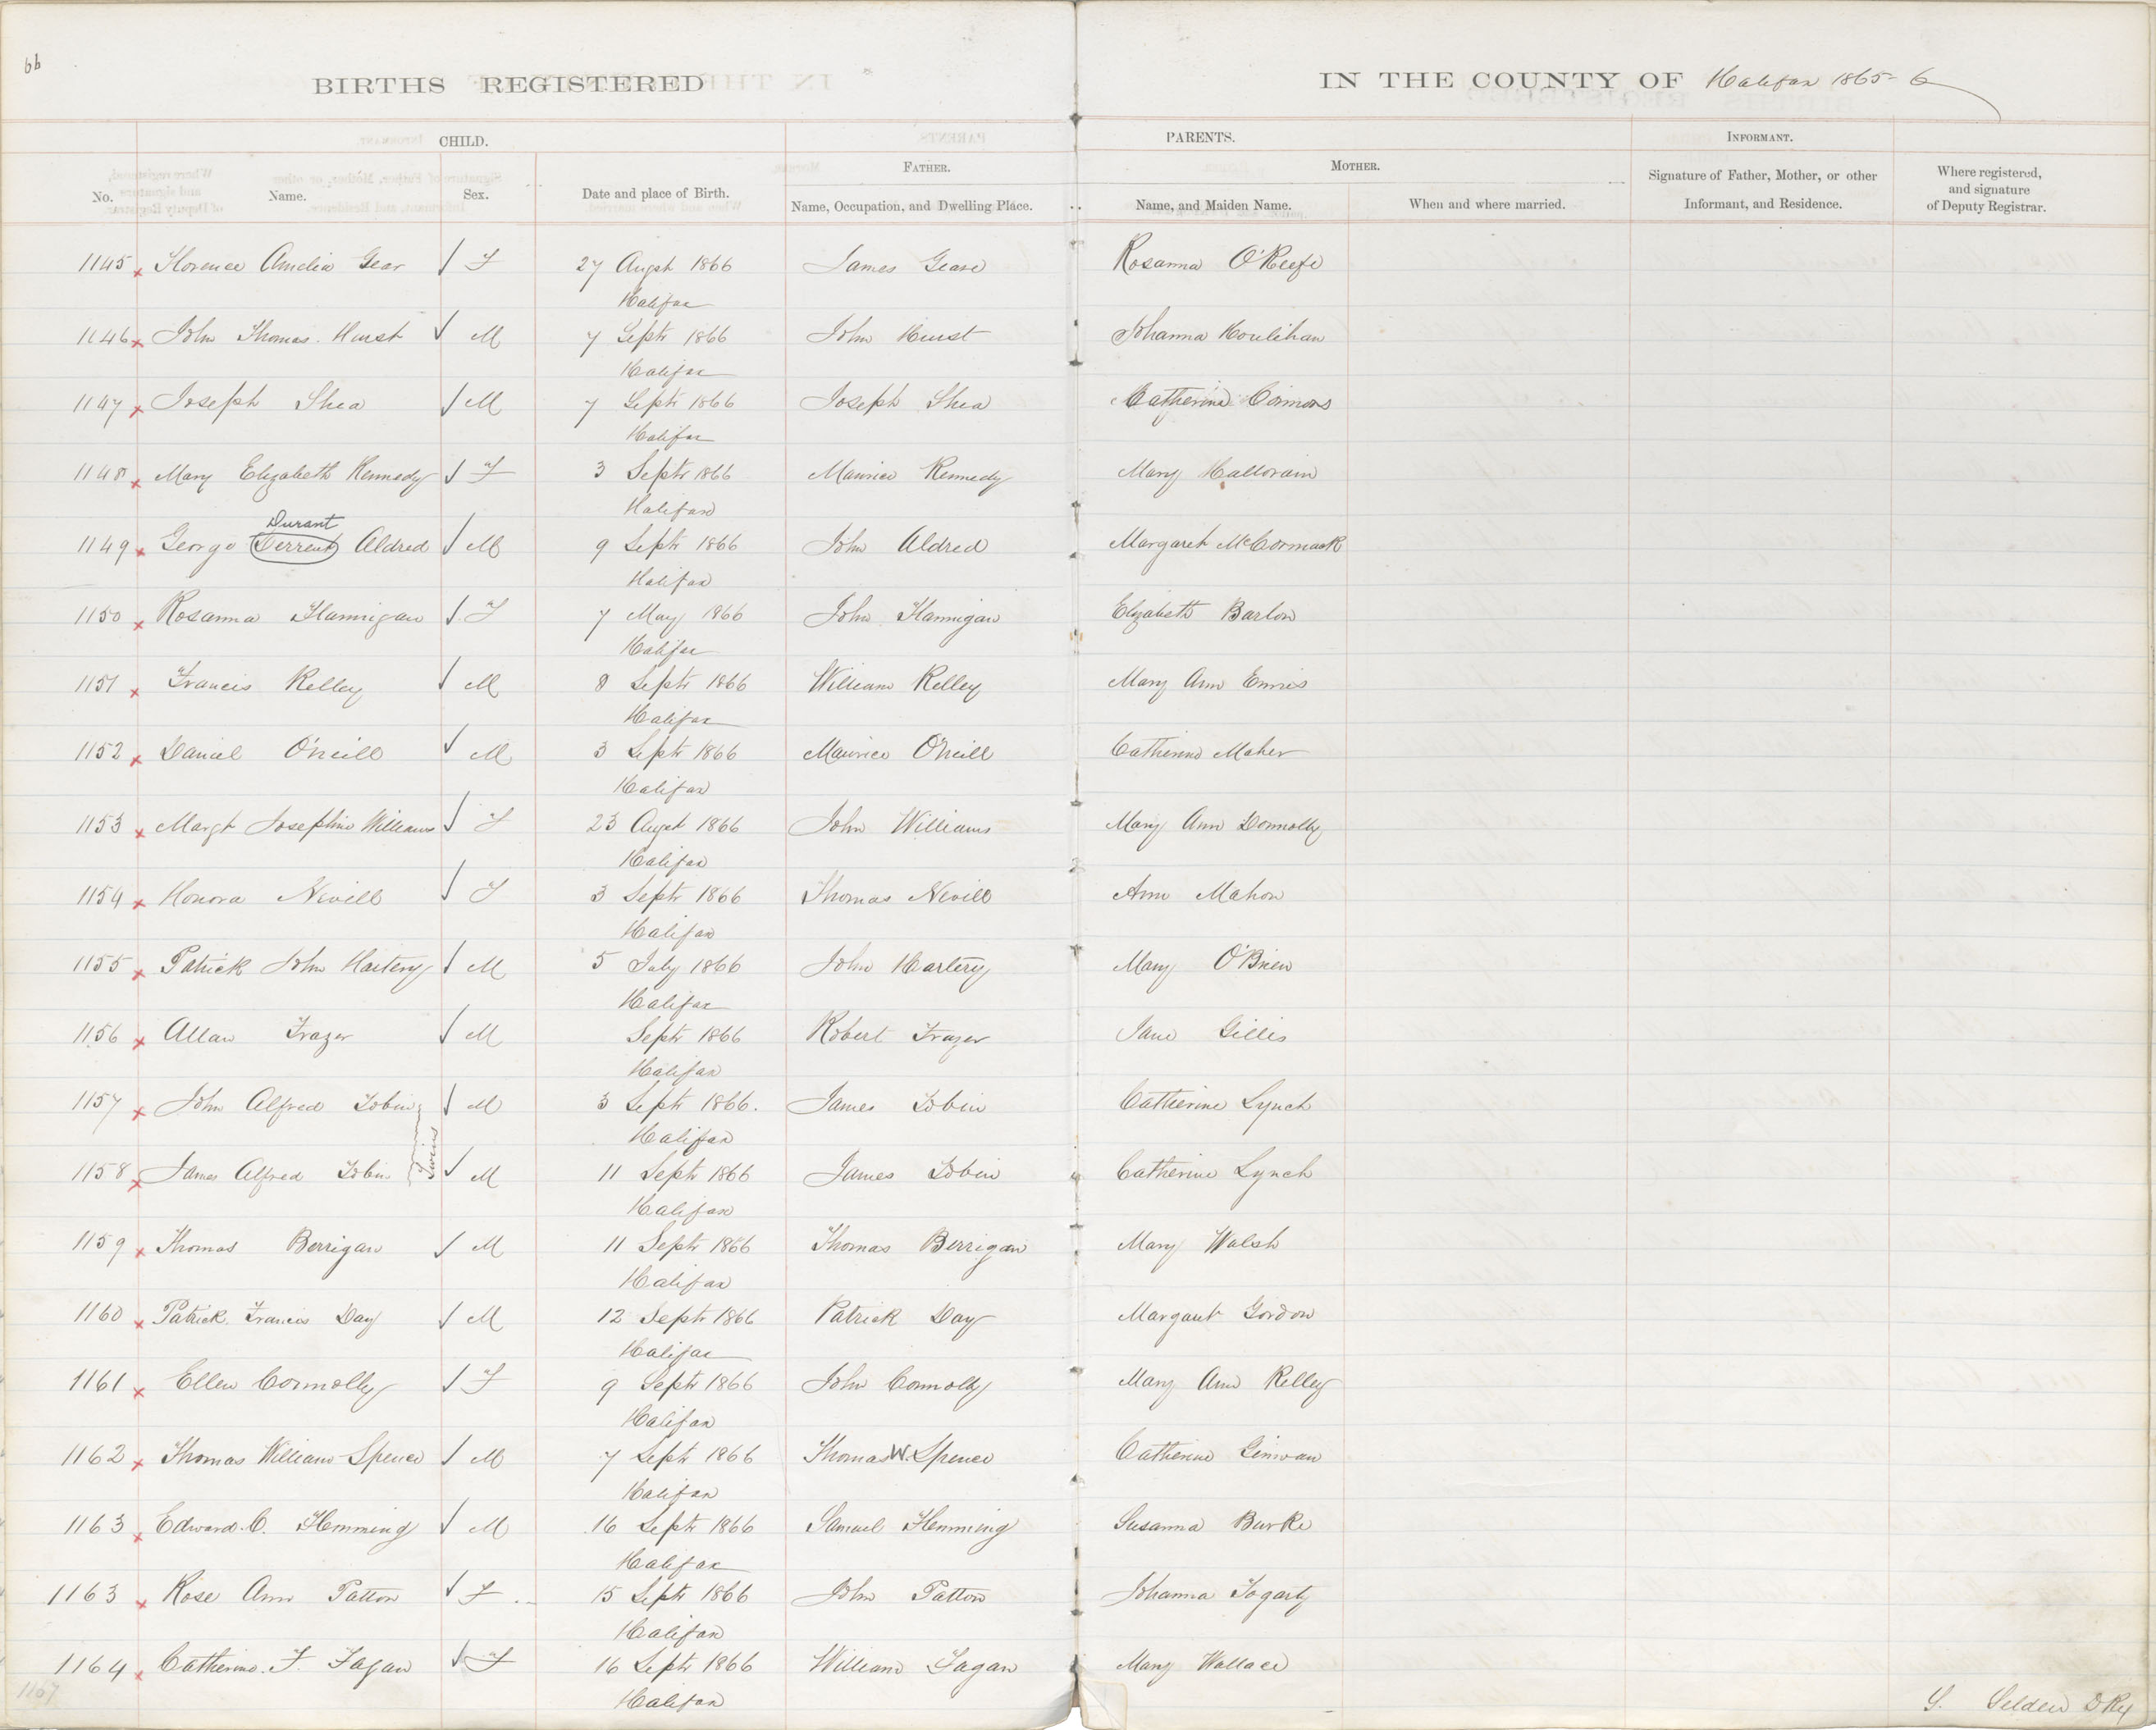 66
BIRTHS REGISTERED
IN THE COUNTY OF Halifax 1865-6
CHILD.
PARENTS.
INFORMANT.
No.
Name.
Sex.
Date and place of Birth.
FATHER.
Name, Occupation, and Dwelling Place.
MOTHER.
Name, and Maiden Name.
When and where married.
Signature of Father, Mother, or other
Informant, and Residence.
Where registered,
and signature
of Deputy Registrar.
1145 x Florence Amelia Gear √ F 27 Augst 1866 James Geare Rosanna O'Keefe
Halifax
1146 x John Thomas Hurst √ M 7 Septr 1866 John Hurst Johanna Houlihan
Halifax
1147 x Joseph Shea √ M 7 Septr 1866 Joseph Shea Catherine Connors
Halifax
1148 x Mary Elizabeth Kennedy √ F 3 Septr 1866 Maurice Kennedy Mary Hallorain
Halifax
Durant
1149 x George Derrent Aldred √ M 9 Septr 1866 John Aldred Margaret McCormack
Halifax
1150 x Rosanna Flannigan √ F 7 May 1866 John Flannigan Elizabeth Barlow
Halifax
1151 x Francis Kelley √ M 8 Septr 1866 William Kelley Mary Ann Ennis
Halifax
1152 x Daniel O'neill √ M 3 Septr 1866 Maurice O'neill Catherine Maher
Halifax
1153 x Margt Josephine Williams √ F 23 Augst 1866 John Williams Mary Ann Donnolly
Halifax
1154 x Honora Nevill √ F 3 Septr 1866 Thomas Nevill Ann Mahon
Halifax
1155 x Patrick John Hartery √ M 5 July 1866 John Hartery Mary O'Brien
Halifax
1156 x Allan Frazer √ M Septr 1866 Robert Frazer Jane Gillis
Halifax
1157 x John Alfred Tobin √ M 3 Septr 1866. James Tobin Catherine Lynch
Twins
Halifax
1158 x James Alfred Tobin √ M 11 Septr 1866 James Tobin Catherine Lynch
Halifax
1159 x Thomas Berrigan √ M 11 Septr 1866 Thomas Berrigan Mary Walsh
Halifax
1160 x Patrick Francis Day √ M 12 Septr 1866 Patrick Day Margaret Gordon
Halifax
1161 x Ellen Connolly √ F 9 Septr 1866 John Connolly Mary Ann Kelley
Halifax
1162 x Thomas William Spence √ M 7 Septr 1866 Thomas W. Spence Catherine
Halifax
1163 x Edward C. Flemming √ M 16 Septr 1866 Samuel Flemming Susanna Burke
Halifax
1163 x Rose Ann Patton √ F 15 Septr 1866 John Patton Johanna Fogarty
Halifax
1164 x Catherine F. Fagan √ F 16 Septr 1866 William Fagan Mary Wallace
1167
Halifax
S. Selden D Reg